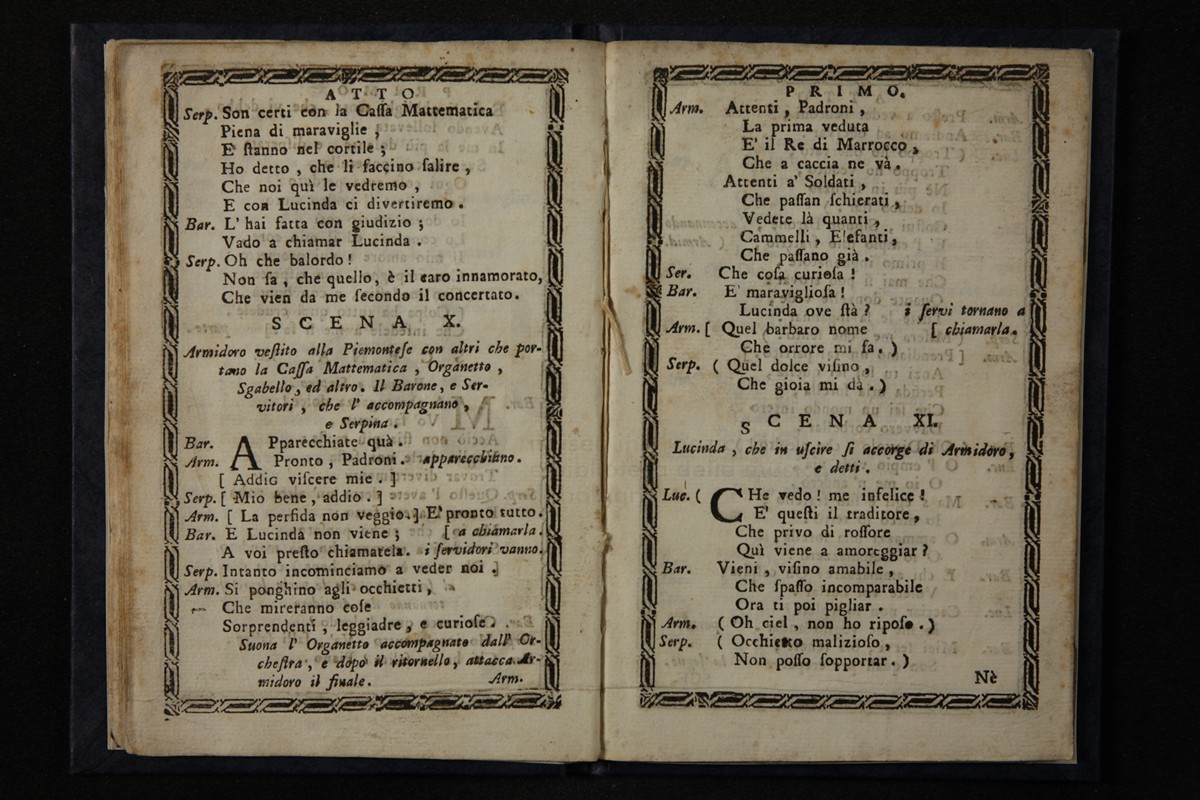 ATTO
Serp. Son certi con la Caſſa Mattematica
Piena di maraviglie ,
E' ſtanno nel cortile ;
Ho detto , che li faccino ſalire ,
Che noi quì le vedremo ,
E con Lucinda ci divertiremo .
Bar. L' hai fatta con giudizio ;
Vado a chiamar Lucinda .
Serp. Oh che balordo !
Non ſa , che quello , è il caro innamorato,
Che vien da me ſecondo il concertato.
SCENA X.
Armidoro veſtito alla Piemonteſe con altri che por-
tano la Caſſa Mattematica , Organetto ,
Sgabello , ed altro . Il Barone , e Ser-
vitori , che l' accompagnano ,
e Serpina .
Bar. APparecchiate quà .
Arm. Pronto , Padroni . apparecchiano.
[ Addio viſcere mie . ]
Serp. [ Mio bene , addio . ]
Arm. [ La perfida non veggio. ] E' pronto tutto.
Bar. E Lucinda non viene ; [ a chiamarla.
A voi preſto chiamatela. i ſervidori vanno.
Serp. Intanto incominciamo a veder noi .
Arm. Si ponghino agli occhietti ,
Che mireranno coſe
Sorprendenti , leggiadre , e curioſe .
Suona l' Organetto accompagnato dall' Or-
cheſtra , e dopo il ritornello , attacca Ar-
midoro il finale . Arm.
PRIMO.
Arm. Attenti , Padroni ,
La prima veduta
E' il Re di Marrocco ,
Che a caccia ne và .
Attenti a' Soldati ,
Che paſſan ſchierati ,
Vedete là quanti ,
Cammelli , Elefanti ,
Che paſſano già .
Ser. Che coſa curioſa !
Bar. E' maraviglioſa !
Lucinda ove ſtà ? i ſervi tornano a
Arm. [ Quel barbaro nome [ chiamarla.
Che orrore mi fa . )
Serp. ( Quel dolce viſino ,
Che gioia mi dà . )
SCENA XI.
Lucinda , che in uſcire ſi accorge di Armidoro,
e detti .
Luc. ( CHe vedo ! me infelice !
E' queſti il traditore ,
Che privo di roſſore
Quì viene a amoreggiar ?
Bar. Vieni , viſino amabile ,
Che ſpaſſo incomparabile
Ora ti poi pigliar .
Arm. ( Oh ciel , non ho ripoſo . )
Serp. ( Occhietto malizioſo ,
Non poſſo ſopportar . )
Nè